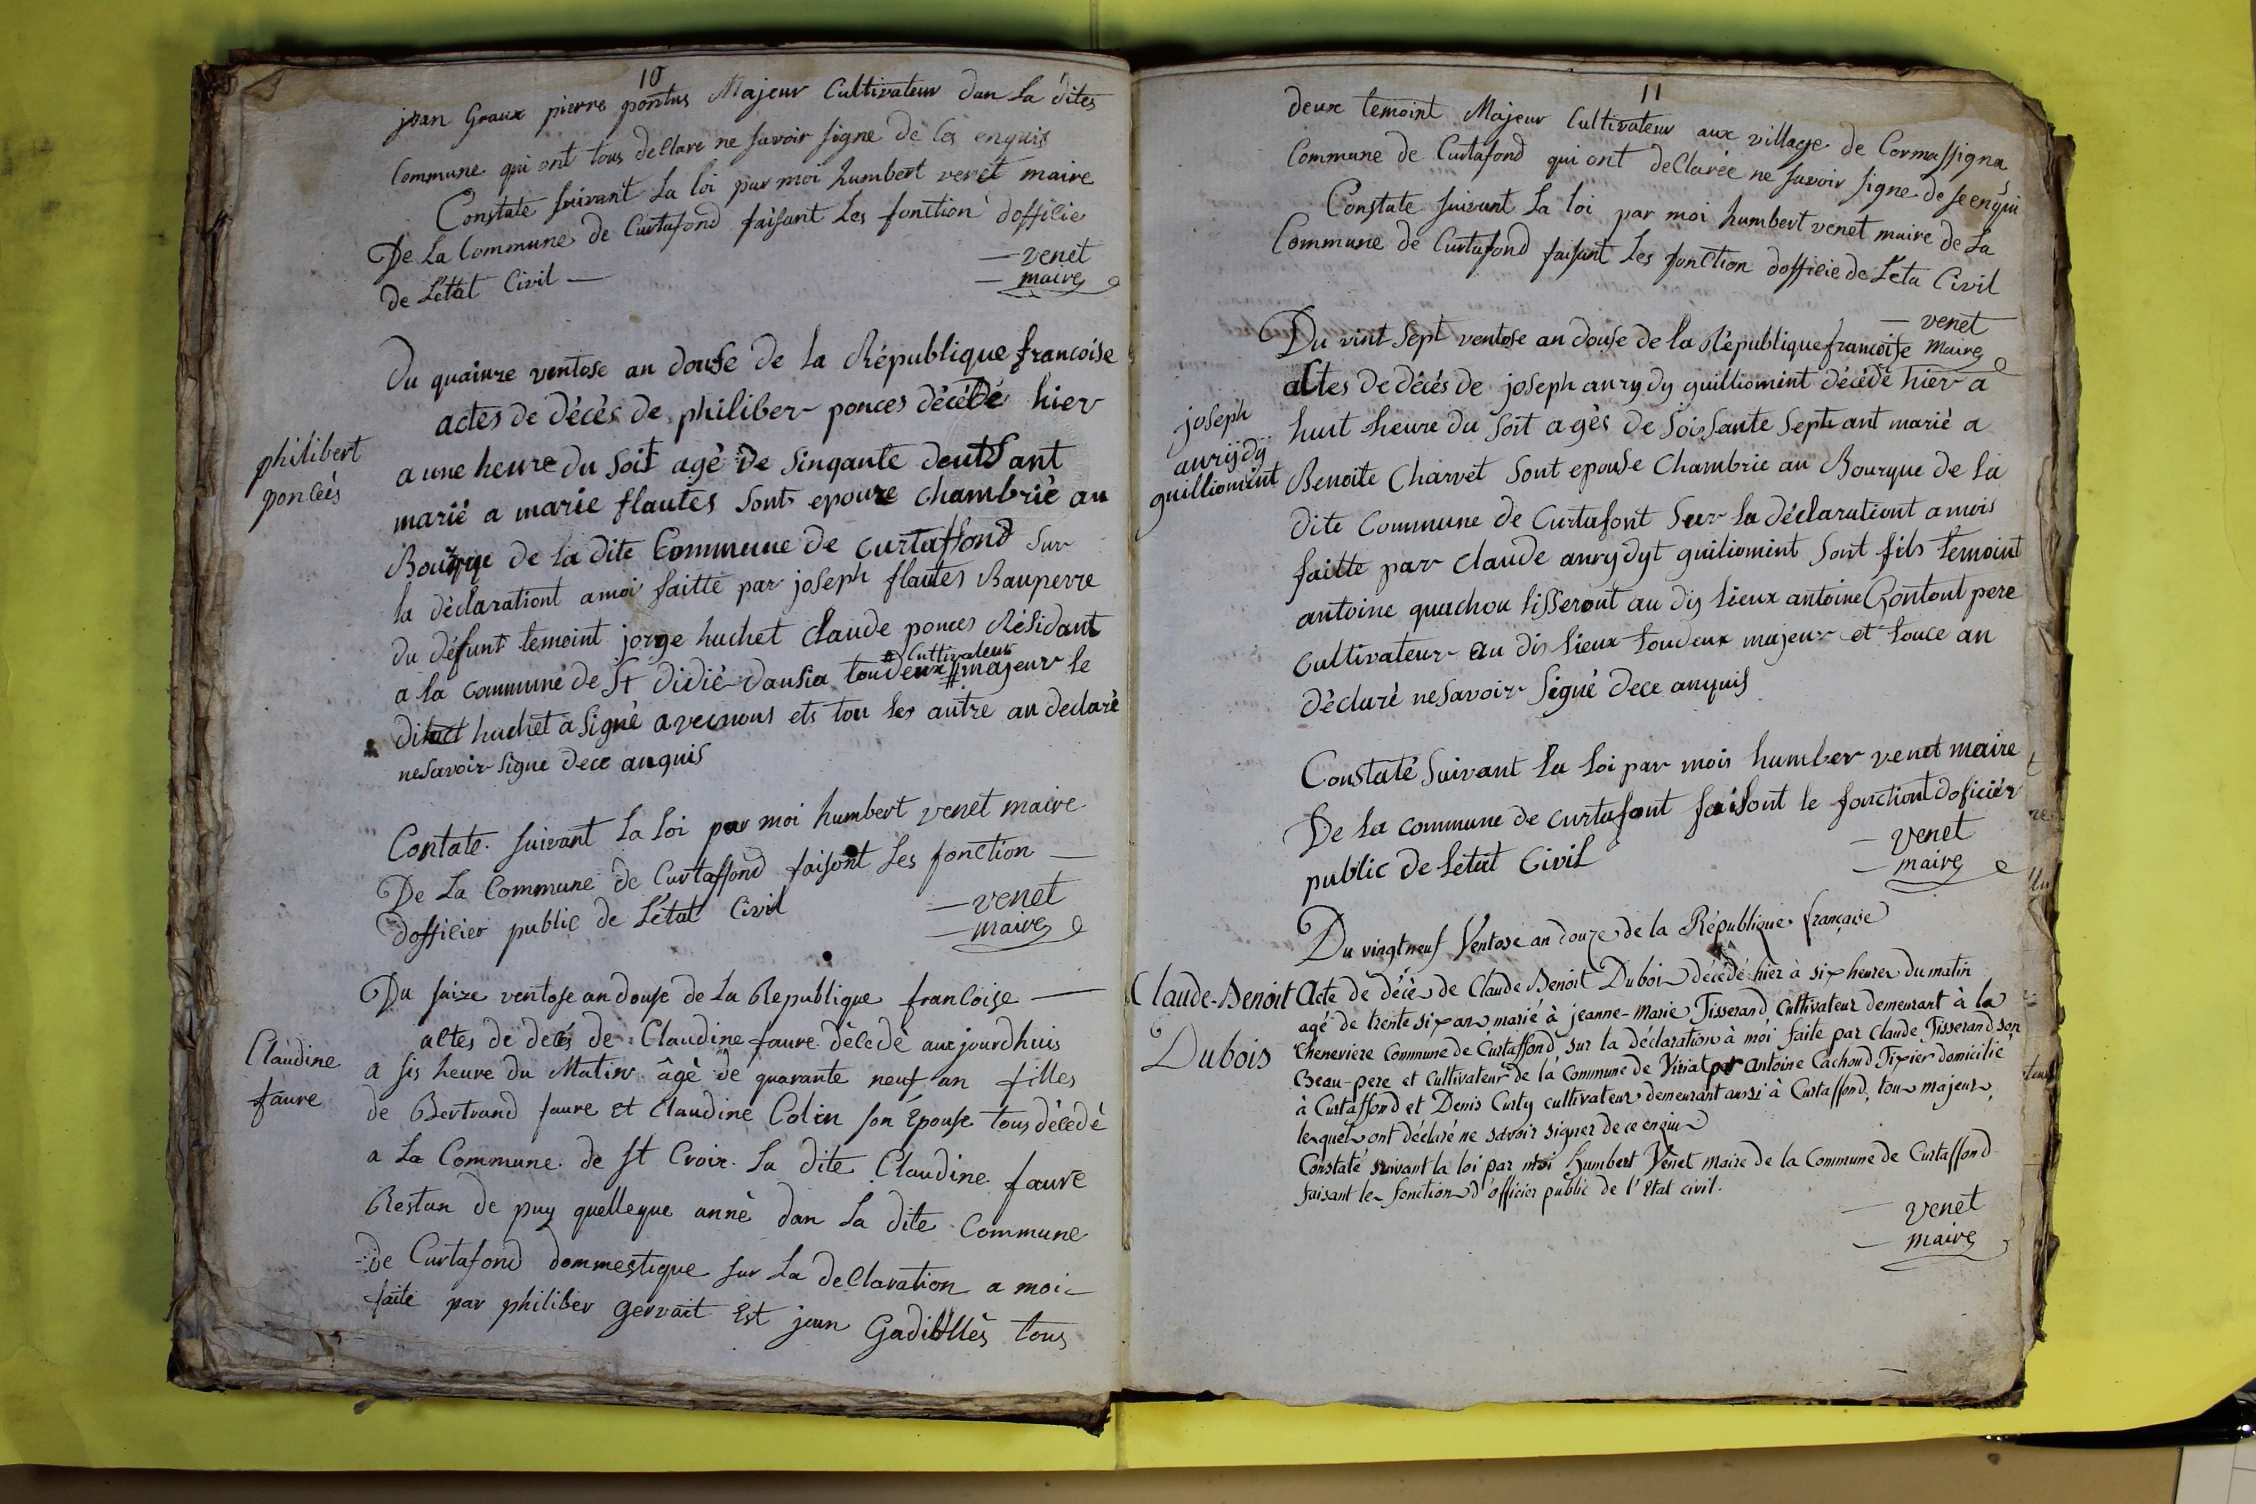 10
jean Graux pierre pontus Majeur Cultivateur dan la dites
Commune qui ont tous declare ne savoir signe de ces enquis
Constate suivant la loi par moi humbert venet maire
De la Commune de Curtafond faisant les fonction d'officie
de L'état Civil
venet
maire
Du quainze ventose an douse de la République francoise
actes de décès de philiber ponces décédé hier
philibert
poncés
a une heure du soit agé de sinqante deuts ant
marié a marie flautes sont epouze chambrié au
Bourque de la dite Commune de curtaffond sur
la déclarationt a moi faitte par joseph flautes Bauperre
du défunt temoint jorge huchet claude ponces Résidant
# Cultivateur
a la communé de St didié dausia toudeux # majeur le
dit huchet a signé avecnous ets tou les autre an declaré
nesavoir signe dece anquis
Contate suivant la loi par moi humbert venet maire
De La Commune de Curtaffond faisont les fonction
dofficier public de L'état Civil
venet
maire
Du saize ventose an douse de la Republique francoise
Claudine
faure
actes de decés de Claudine faure décédé aux jourdhuis
a sis heure du Matin âgé de quarante neuf an filles
de Bertrand faure et Claudine Colin son Épouse tous décédé
a la Commune de st Croix la dite Claudine faure
Restan de puy quelleque anné dan la dite Commune
de Curtafond dommestique sur la declaration a moi
faite par philiber gervait Est jean Gadiollès tous
11
deux temoint Majeur Cultivateur aux village de Cormassigna
Commune de Curtafond qui ont declarée ne savoir signe de se enqui
Constate suivant la loi par moi humbert venet maire de la
Commune de Curtafond faisant les fonction dofficie de L'éta Civil
venet
maire
Du vint sept ventose an douse de la République francoise
joseph
aurÿdy
guilliomint
actes de décés de joseph aurydy guilliomint décédé hier a
huit heure du soit agés de soissante sept ant marié a
Benoite Charvet sont epouse Chambrie au Bourque de la
dite commune de Curtafont sur la déclarationt a mois
faitte par claude aurydyt guiliomint sont fils temoint
antoine quachou tisseront au dis lieux antoine Gontont pere
cultivateur au dis lieux toudeux majeur et touce an
déclaré nesavoir signé dece anquis
Constaté suivant la loi par mois humber venet maire
De la commune de curtafont faisont le fonctiont doficiér
public de letat Civil
venet
maire
Du vingt neuf Ventose an douze de la République française
Claude-Benoit
Dubois
Acte de décès de Claude Benoit Dubois décédé hier à six heures du matin
agé de trente six ans marié à jeanne-Marie Tisserand Cultivateur demeurant à la
Cheneviere Commune de Curtaffond, sur la déclaration à moi faite par Claude Tisserand son
Beau-pere et Cultivateur de la Commune de Viriat par antoine Cachoud Tixier domicilié
à Curtaffond et Denis Curty cultivateur demeurant aussi à Curtaffond, tous majeurs,
lesquels ont déclaré ne savoir signer de ce enquis
Constaté suivant la loi par moi Humbert Venet Maire de la Commune de Curtaffond
faisant les fonctions d'officier public de l'Etat civil.
venet
maire